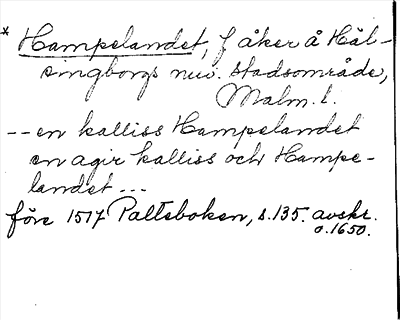 * Hampelandet, f åker å Häl-
singborgs nuv. stadsområde,
Malm. l.
-- en kalliss Hampelandet
en agir kalliss och Hampe-
landet ...
före 1517 Palteboken, s. 135. avskr.
o. 1650.